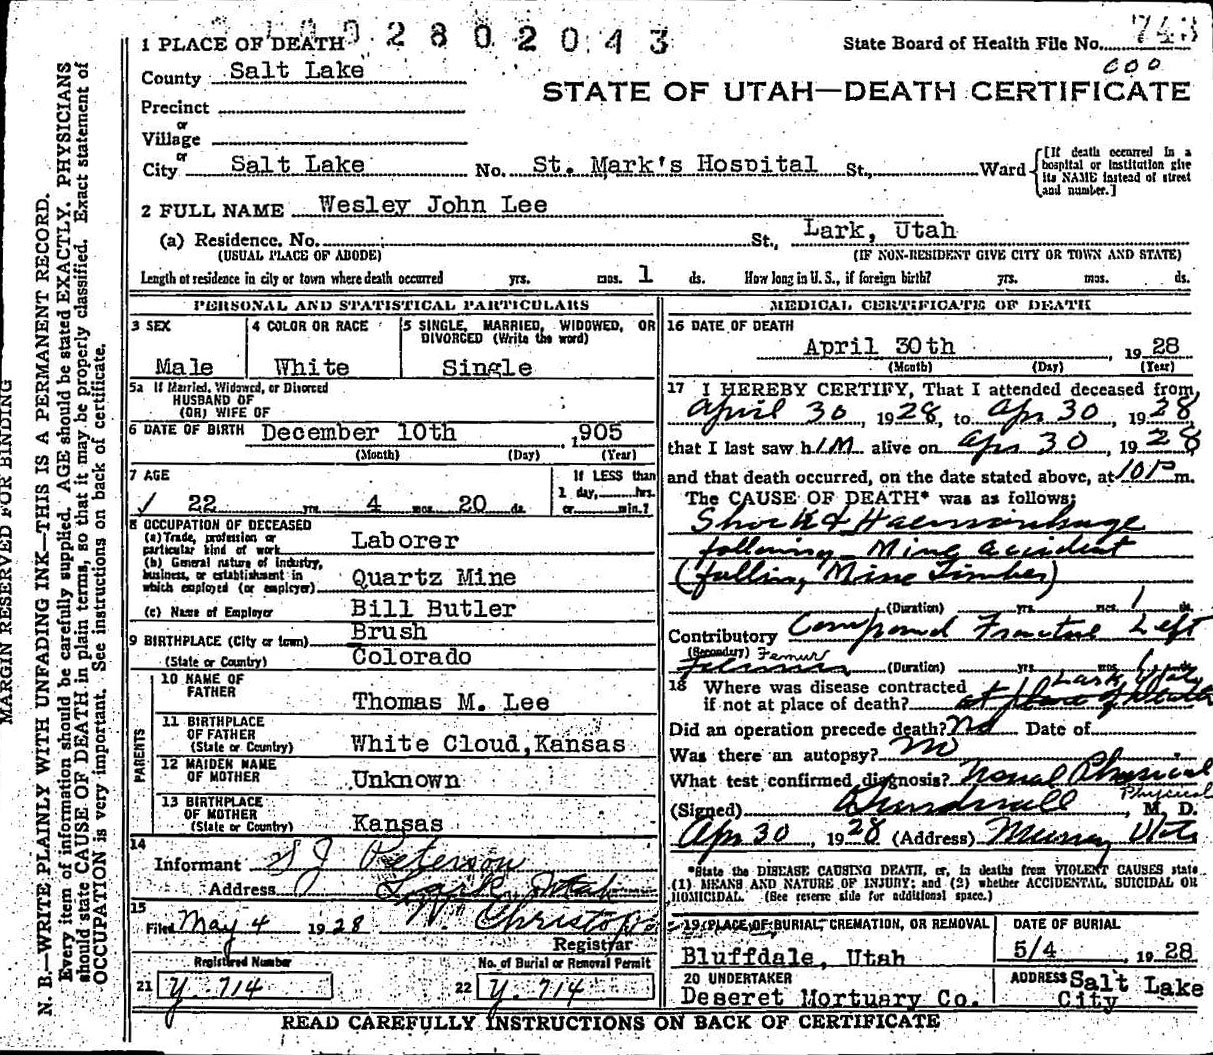 2802043
1 PLACE OF DEATH
State Board of Health File No. 743
000
County Salt Lake
STATE OF UTAH—DEATH CERTIFICATE
Precinct
or
Village
or
City Salt Lake No. St. Mark's Hospital St., Ward
[If death occurred in a hospital or institution give its NAME instead of street and number.]
2 FULL NAME Wesley John Lee
(a) Residence. No. St., Lark, Utah
(USUAL PLACE OF ABODE) (IF NON-RESIDENT GIVE CITY OR TOWN AND STATE)
Length of residence in city or town where death occurred yrs. mos. 1 ds. How long in U. S., if foreign birth? yrs. mos. ds.
PERSONAL AND STATISTICAL PARTICULARS
3 SEX
Male
4 COLOR OR RACE
White
5 SINGLE, MARRIED, WIDOWED, OR DIVORCED (Write the word)
Single
5a If Married, Widowed, or Divorced
HUSBAND OF
(OR) WIFE OF
6 DATE OF BIRTH December 10th , 1905
(Month) (Day) (Year)
7 AGE
22 yrs. 4 mos. 20 ds.
If LESS than
1 day, hrs.
or min.?
8 OCCUPATION OF DECEASED
(a) Trade, profession or particular kind of work Laborer
(b) General nature of industry, business, or establishment in which employed (or employer) Quartz Mine
(c) Name of Employer Bill Butler
9 BIRTHPLACE (City or town) Brush
(State or Country) Colorado
PARENTS
10 NAME OF FATHER Thomas M. Lee
11 BIRTHPLACE OF FATHER (State or Country) White Cloud, Kansas
12 MAIDEN NAME OF MOTHER Unknown
13 BIRTHPLACE OF MOTHER (State or Country) Kansas
14
Informant S J Peterson
Address Lark, Utah
15
Filed May 4 1928
Registrar
Registered Number
21 Y. 714
No. of Burial or Removal Permit
22 Y. 714
MEDICAL CERTIFICATE OF DEATH
16 DATE OF DEATH
April 30th , 1928
(Month) (Day) (Year)
17 I HEREBY CERTIFY, That I attended deceased from
April 30, 1928, to Apr 30, 1928
that I last saw him alive on Apr 30, 1928
and that death occurred, on the date stated above, at 10 P m.
The CAUSE OF DEATH* was as follows:
Shock & Haemorrhage
following Mine accident
(falling Mine Timber)
(Duration) yrs. mos. 1 ds.
Contributory Compound Fracture Left
(Secondary) Femur
Femur (Duration) yrs. mos. 1 ds.
18 Where was disease contracted Lark, Utah
if not at place of death? at place of death
Did an operation precede death? No Date of
Was there an autopsy? No
What test confirmed diagnosis? Physical
Physical
(Signed) M D.
Apr 30, 1928 (Address) Murray Utah
*State the DISEASE CAUSING DEATH, or, in deaths from VIOLENT CAUSES state
(1) MEANS AND NATURE OF INJURY; and (2) whether ACCIDENTAL, SUICIDAL OR
HOMICIDAL. (See reverse side for additional space.)
19 PLACE OF BURIAL, CREMATION, OR REMOVAL
Bluffdale, Utah
DATE OF BURIAL
5/4 , 1928
20 UNDERTAKER
Deseret Mortuary Co.
ADDRESS Salt Lake
City
READ CAREFULLY INSTRUCTIONS ON BACK OF CERTIFICATE
MARGIN RESERVED FOR BINDING
N. B.—WRITE PLAINLY WITH UNFADING INK—THIS IS A PERMANENT RECORD.
Every item of information should be carefully supplied. AGE should be stated EXACTLY. PHYSICIANS
should state CAUSE OF DEATH in plain terms, so that it may be properly classified. Exact statement of
OCCUPATION is very important. See instructions on back of certificate.